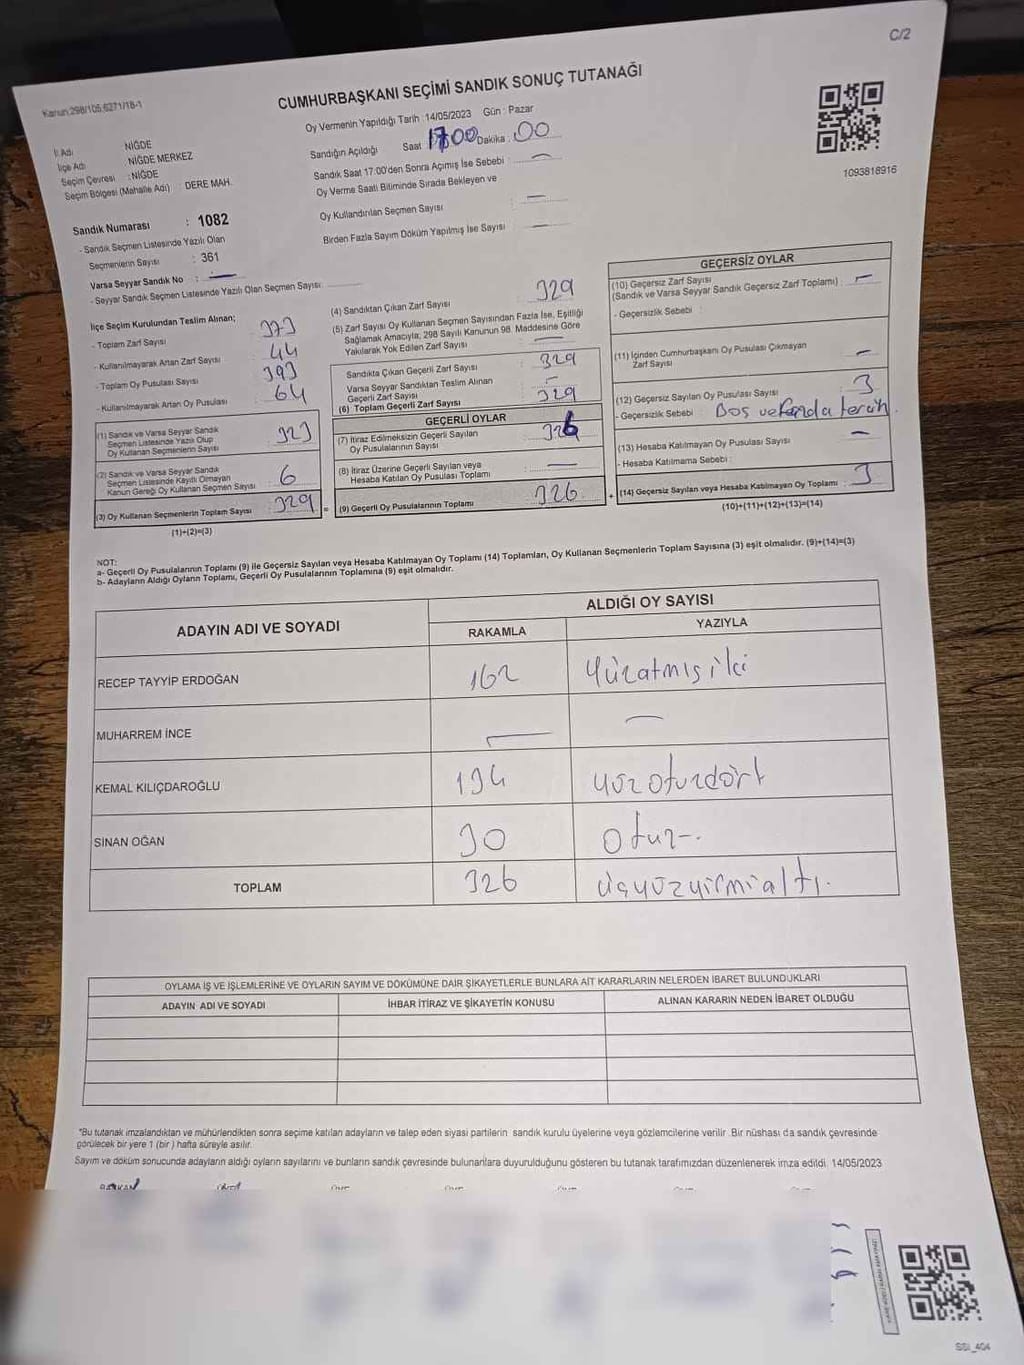 C/2
Kanun:298/105,6271/18-1
CUMHURBAŞKANI SEÇİMİ SANDIK SONUÇ TUTANAĞI
Oy Vermenin Yapıldığı Tarih :14/05/2023 Gün : Pazar
İl Adı : NİĞDE
İlçe Adı : NİĞDE MERKEZ
Seçim Çevresi : NİĞDE
Seçim Bölgesi (Mahalle Adı) : DERE MAH.
Sandığın Açıldığı Saat 17:00 Dakika : 00
Sandık Saat 17:00'den Sonra Açımış İse Sebebi : —
Oy Verme Saati Bitiminde Sırada Bekleyen ve
Oy Kullandırılan Seçmen Sayısı : —
Birden Fazla Sayım Döküm Yapılmış İse Sayısı : —
1093818916
Sandık Numarası : 1082
- Sandık Seçmen Listesinde Yazılı Olan
Seçmenlerin Sayısı : 361
Varsa Seyyar Sandık No : —
- Seyyar Sandık Seçmen Listesinde Yazılı Olan Seçmen Sayısı:
İlçe Seçim Kurulundan Teslim Alınan;
- Toplam Zarf Sayısı : 373
- Kullanılmayarak Artan Zarf Sayısı : 44
- Toplam Oy Pusulası Sayısı : 393
- Kullanılmayarak Artan Oy Pusulası : 64
(1) Sandık ve Varsa Seyyar Sandık
Seçmen Listesinde Yazılı Olup
Oy Kullanan Seçmenlerin Sayısı : 323
(2) Sandık ve Varsa Seyyar Sandık
Seçmen Listesinde Kayıtlı Olmayan
Kanun Gereği Oy Kullanan Seçmen Sayısı : 6
(3) Oy Kullanan Seçmenlerin Toplam Sayısı : 329
(1)+(2)=(3)
(4) Sandıktan Çıkan Zarf Sayısı : 329
(5) Zarf Sayısı Oy Kullanan Seçmen Sayısından Fazla İse, Eşitliği
Sağlamak Amacıyla, 298 Sayılı Kanunun 98. Maddesine Göre
Yakılarak Yok Edilen Zarf Sayısı : —
Sandıkta Çıkan Geçerli Zarf Sayısı : 329
Varsa Seyyar Sandıktan Teslim Alınan
Geçerli Zarf Sayısı : –
(6) Toplam Geçerli Zarf Sayısı : 329
GEÇERLİ OYLAR
(7) İtiraz Edilmeksizin Geçerli Sayılan
Oy Pusulalarının Sayısı : 326
(8) İtiraz Üzerine Geçerli Sayılan veya
Hesaba Katılan Oy Pusulası Toplamı : —
= (9) Geçerli Oy Pusulalarının Toplamı : 326
GEÇERSİZ OYLAR
(10) Geçersiz Zarf Sayısı
(Sandık ve Varsa Seyyar Sandık Geçersiz Zarf Toplamı) : –
- Geçersizlik Sebebi :
(11) İçinden Cumhurbaşkanı Oy Pusulası Çıkmayan
Zarf Sayısı : –
(12) Geçersiz Sayılan Oy Pusulası Sayısı : 3
- Geçersizlik Sebebi : Boş ve tercih
(13) Hesaba Katılmayan Oy Pusulası Sayısı : –
- Hesaba Katılmama Sebebi :
+ (14) Geçersiz Sayılan veya Hesaba Katılmayan Oy Toplamı : 3
(10)+(11)+(12)+(13)=(14)
NOT:
a- Geçerli Oy Pusulalarının Toplamı (9) ile Geçersiz Sayılan veya Hesaba Katılmayan Oy Toplamı (14) Toplamları, Oy Kullanan Seçmenlerin Toplam Sayısına (3) eşit olmalıdır. (9)+(14)=(3)
b- Adayların Aldığı Oyların Toplamı, Geçerli Oy Pusulalarının Toplamına (9) eşit olmalıdır.
ADAYIN ADI VE SOYADI
ALDIĞI OY SAYISI
RAKAMLA YAZIYLA
RECEP TAYYİP ERDOĞAN 162 Yüzatmışiki
MUHARREM İNCE — —
KEMAL KILIÇDAROĞLU 134 yüzotuzdört
SİNAN OĞAN 30 otuz–.
TOPLAM 326 üçyüzyirmialtı.
OYLAMA İŞ VE İŞLEMLERİNE VE OYLARIN SAYIM VE DÖKÜMÜNE DAİR ŞİKAYETLERLE BUNLARA AİT KARARLARIN NELERDEN İBARET BULUNDUKLARI
ADAYIN ADI VE SOYADI İHBAR İTİRAZ VE ŞİKAYETİN KONUSU ALINAN KARARIN NEDEN İBARET OLDUĞU
*Bu tutanak imzalandıktan ve mühürlendikten sonra seçime katılan adayların ve talep eden siyasi partilerin sandık kurulu üyelerine veya gözlemcilerine verilir .Bir nüshası da sandık çevresinde
görülecek bir yere 1 (bir ) hafta süreyle asılır.
Sayım ve döküm sonucunda adayların aldığı oyların sayılarını ve bunların sandık çevresinde bulunanlara duyurulduğunu gösteren bu tutanak tarafımızdan düzenlenerek imza edildi. 14/05/2023
SSI_404